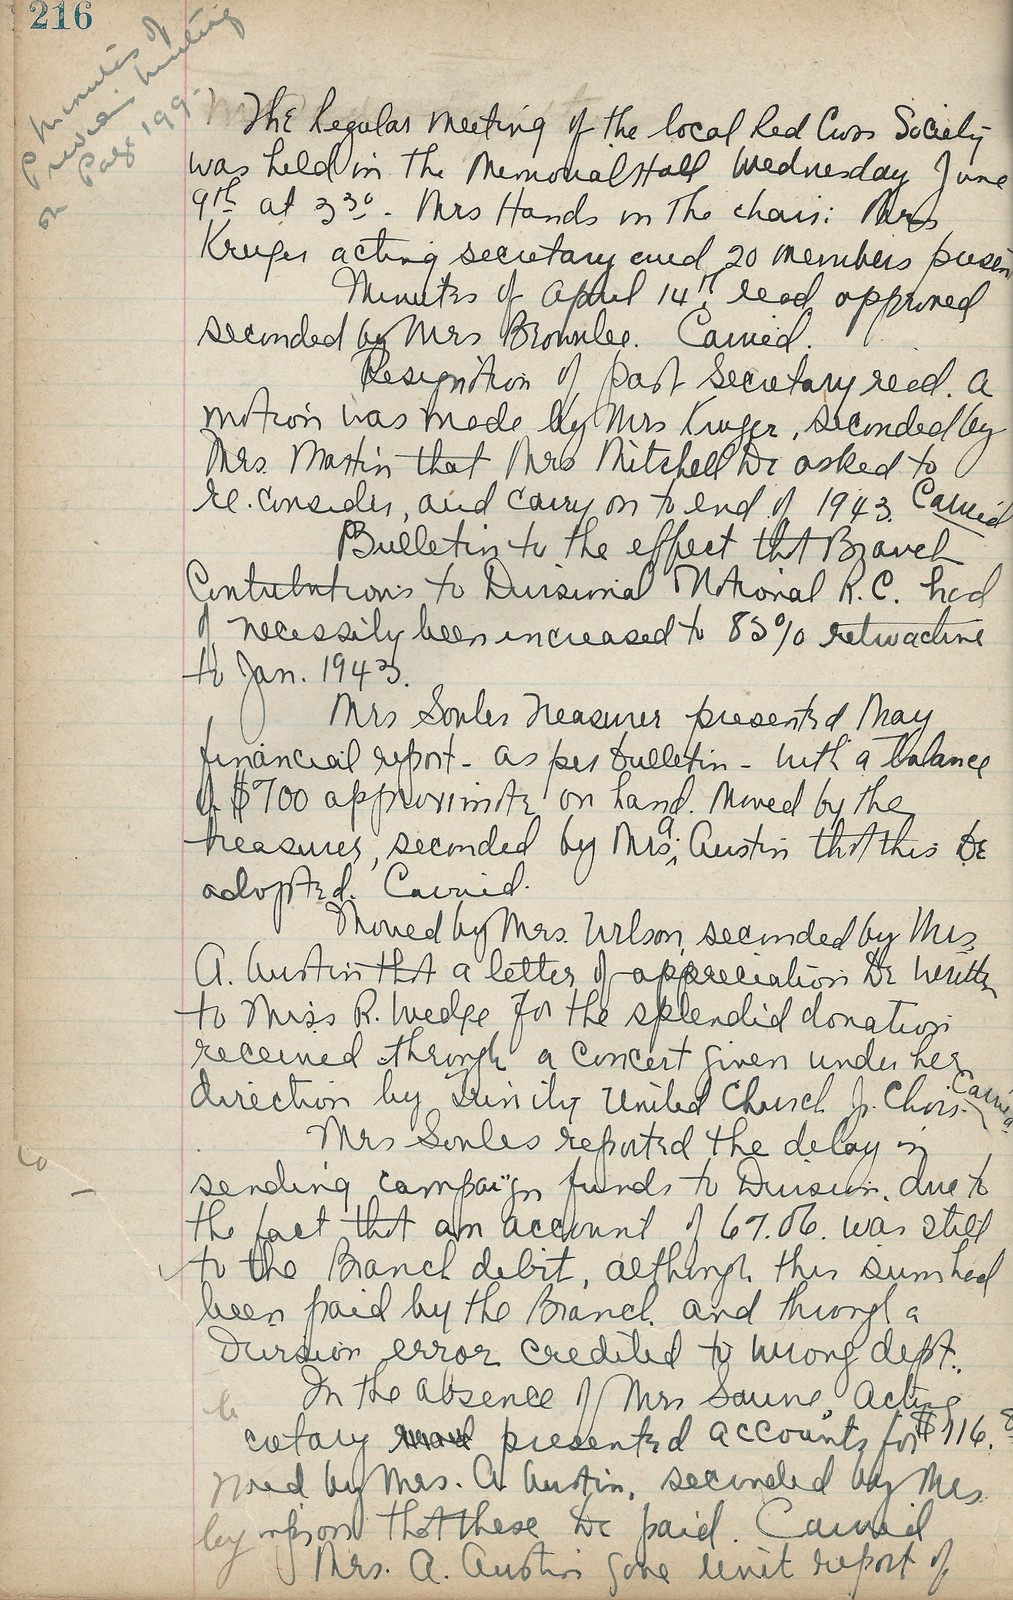 216
Minutes of
previous meeting
on Page 199.
The Regular Meeting of the local Red Cross Society
was held in the Memorial Hall Wednesday June
9th at 3 30. Mrs Hands in the chair: Mrs
Kruger acting secretary and 20 members presen
Minutes of April 14th, read, approved
seconded by Mrs Brownlee. Carried.
Resignation of past Secretary read. A
motion was made by Mrs Kruger, seconded by
Mrs. Martin that Mrs Mitchell be asked to
re.consider, and carry on to end of 1943. Carried
Bulletin to the effect that Branch
Contributions to Divisional National R.C. had
of necessity been increased to 85% retroactive
to Jan. 1943.
Mrs Soules Treasurer presented May
financial report - as per bulletin - with a balance
of $700 approximate on hand. Moved by the
treasurer, seconded by Mrs. A. Austin that this be
adopted. Carried.
Moved by Mrs. Wilson, seconded by Mrs.
A. Austin that a letter of appreciation be written
to Miss R. Wedge for the splendid donation
received through a concert given under her
direction by Trinity United Church Jr. Choir. Carried
Mrs Soules reported the delay in
sending campaign funds to Division, due to
the fact that an account of 67.06. was still
to the Branch debit, although this sum had
been paid by the Branch. and through a
Division error credited to wrong dept.
In the absence of Mrs Acting
cretary presented accounts for $716.
Moved by Mrs. A. Austin, seconded by Mrs.
that these be paid. Carried
Mrs. A. Austin gave unit report of